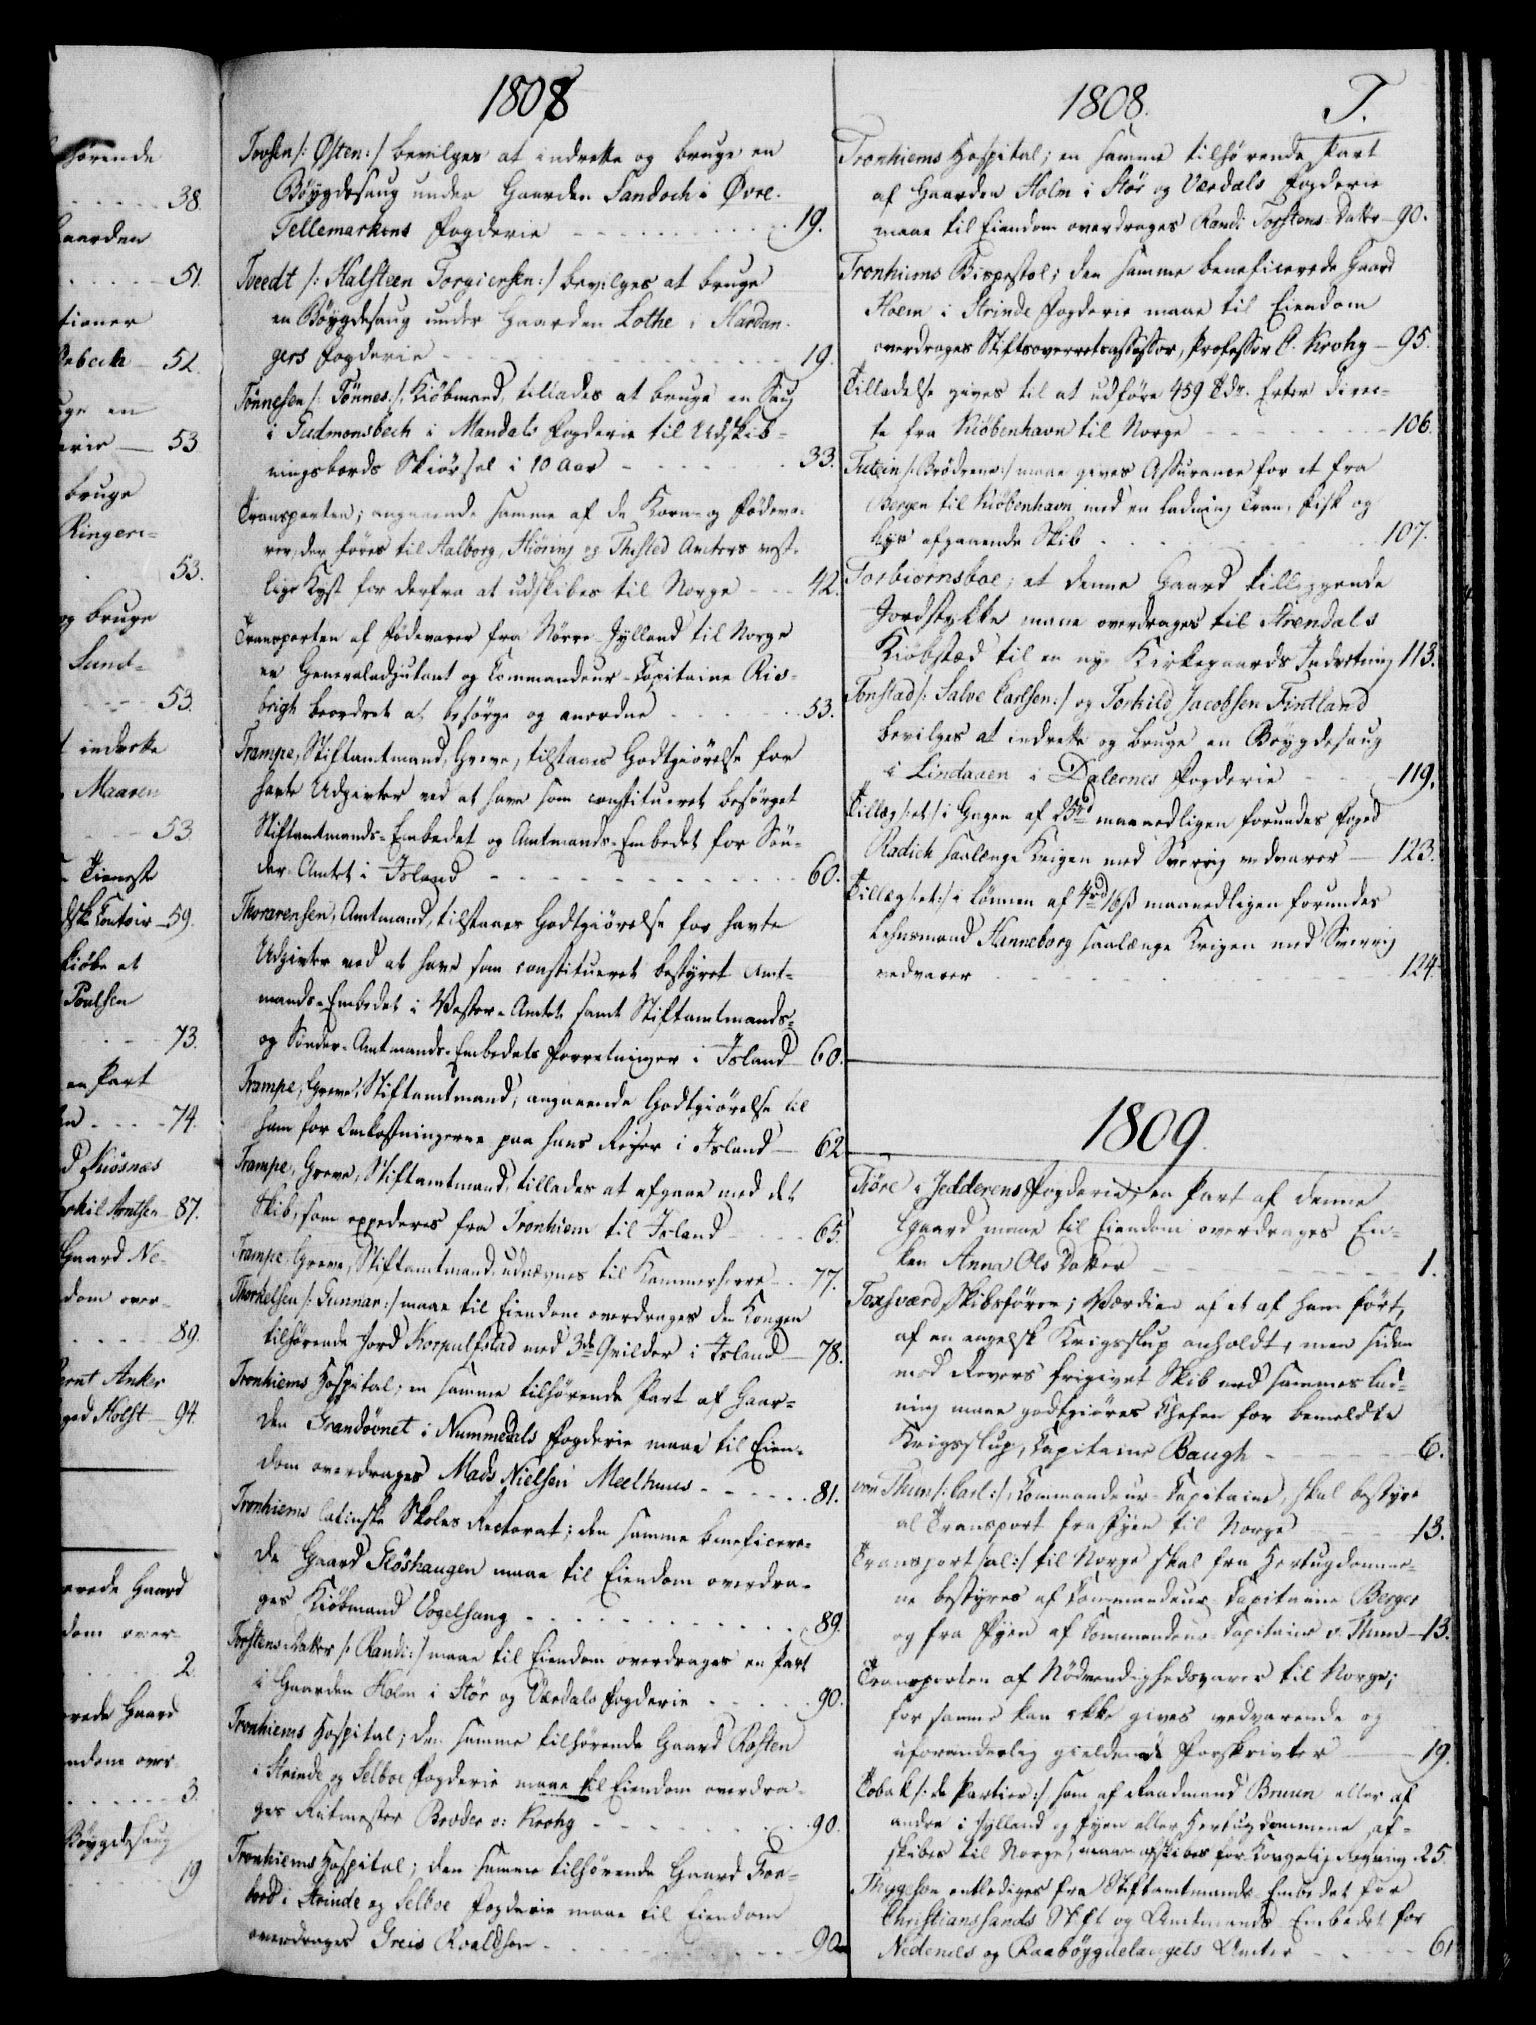 hörende
38.
Gaarden
51.
tioner
Rebech 52.
uge en
erie 53
bruge
Ringeri-
53.
og bruge
Sund-
53.
indrette
Maaren
53
Tieneste
dske Contoir 59.
kiöbe et
Poulsen
73.
en Part
74.
Skiösnæs
Torkil Arntsen 87.
Gaard Ne-
dom over-
89.
Bernt Anker
Foged Holst 94.
erede Gaard
dom over-
2.
erede Gaard
endom over-
3.
Böygdesaug
19
1808
Tovsen /: Østen:/ bevilges at indrette og bruge en
Böygdesaug under Gaarden Sandoch i Øvre-
Tellemarkens Fogderie 19.
Tveedt /: Halsteen Torgiersen:/ bevilges at bruge
en Böygdesaug under Gaarden Lothe i Hardan-
gers Fogderie 19.
Tönnesen /: Tönnes:/, Kiöbmand, tillades at bruge en Saug
i Gudmonsbech i Mandals Fogderie til Udskib-
ningsbords Skiörsel i 10 Aar 33.
Transporten; angaaende samme af de Korn- og Födeva-
rer, der föres til Aalborg, Hiöring og Thisted Amters vest-
lige Kyst for derfra at udskibes til Norge 42.
Transporten af Födevarer fra Nörre-Jylland til Norge
er Generaladjutant og Commandeur-Capitaine Ris-
brigh beordret at besörge og anordne 53.
Trampe, Stiftamtmand, Greve, tilstaaes Godtgiörelse for
havte Udgivter ved at have som constitueret besörget
Stiftamtmands-Embedet og Amtmands-Embedet for Sön-
der-Amtet i Island 60.
Thorarensen, Amtmand, tilstaaes Godtgiörelse for havte
Udgivter ved at have som constitueret bestyret Amt-
mands-Embedet i Vester-Amtet samt Stiftamtmands-
og Sönder-Amtmands-Embedets Forretninger i Island 60.
Trampe, Greve, Stiftamtmand, angaaende Godtgiörelse til
ham for Omkostningerne paa hans Reiser i Island 62
Trampe, Greve, Stiftamtmand, tillades at afgaae med det
Skib, som expederes fra Tronhiem til Island 65.
Trampe, Greve, Stiftamtmand, udnævnes til Kammerherre 77.
Thorkelsen /: Gunnar:/ maae til Eiendom overdrages den Kongen
tilhörende Jord Korpulfstad med 3de Qvilder i Island 78.
Tronhiems Hospital; en samme tilhörende Part af Gaar-
den Grandövnet i Nummedals Fogderie maae til Eien-
dom overdrages Mads Nielsen Meelhuus 81.
Tronhiems latinske Skoles Rectorat; den samme beneficere-
de Gaard Glöshaugen maae til Eiendom overdra-
ges Kiöbmand Vogelsang 89.
Torstens Datter /: Randi:/ maae til Eiendom overdrages en Part
i Gaarden Holm i Stör og Værdals Fogderie 90.
Tronhiems Hospital; den samme tilhörende Gaard Rosten
i Strinde og Selboe Fogderie maae til Eiendom overdra-
ges Ritmester Broder v: Krohg 90.
Tronhiems Hospital; den samme tilhörende Gaard Tron-
bord i Strinde og Selboe Fogderie maae til Eiendom
overdrages Greis Roaldsen 90.
1808. T.
Tronhiems Hospital; en samme tilhörende Part
af Gaarden Holm i Stör og Værdals Fogderie
maae til Eiendom overdrages Randi Torstens-Datter 90.
Tronhiems Bispestol; den samme beneficerede Gaard
Hoem i Strinde Fogderie maae til Eiendom
overdrages Stiftsoverretsassessor, Professor C. Krohg 95.
Tilladelse gives til at udföre 459 Tdr. Erter direc-
te fra Kiöbenhavn til Norge 106.
Tutein /: Brödrene:/ maae gives Assurance for et fra
Bergen til Kiöbenhavn med en Ladning Tran, Fisk og
Lys afgaaende Skib 107.
Torbiörnsboe; et denne Gaard tilliggende
Jordstykke maae overdrages til Arendals
Kiöbstæd til en nye Kirkegaards Indretning 113.
Tonstad /: Salve Carlsen:/ og Torkild Jacobsen Fintland
bevilges at indrette og bruge en Böygdesaug
i Lindaaen i Dalernes Fogderie 119.
Tillæg /: et:/ i Gagen af 25rd maanedligen forundes Foged
Radich saalenge Krigen med Sverrig vedvarer 123.
Tillæg /: et:/ i Lönnen af 4rd 16ß maanedligen forundes
Lehnsmand Hanneborg saalænge Krigen med Sverrig
vedvarer 124
1809.
Tiöre i Jedderens Fogderie; en Part af denne
Gaard maae til Eiendom overdrages En-
ken Anna Ols Datter 1.
Toxsværd, Skibsförer; Værdien af et af ham fört,
af en engelsk Krigsslup anholdt, men siden
mod Revers frigivet Skib med sammes Lad-
ning maae godtgiöres Chefen for bemeldte
Krigsslup, Capitaine Baugh 6.
von Thun /: Carl:/, Commandeur-Capitaine, skal bestyre
al Transport fra Fyen til Norge 13.
Transport /: al:/ til Norge skal fra Hertugdömme-
ne bestyres af Commandeur-Capitaine Berger
og fra Fyen af Commandeur-Capitaine v. Thun 13.
Transporten af Nödvendighedsvarer til Norge;
for samme kan ikke gives vedvarende og
uforanderlig gieldende Forskrivter 19.
Tobak /: de Partier:/ som af Raadmand Bruun eller af
andre i Jylland og Fyen eller Hertugdömmene af-
skibes til Norge, maae afskibes for Kongelig Regning 25.
Thygeson entlediges fra Stiftamtmands-Embedet for
Christianssands Stift og Amtmands-Embedet for
Nedenæs og Raaböygdelaugets Amter 61